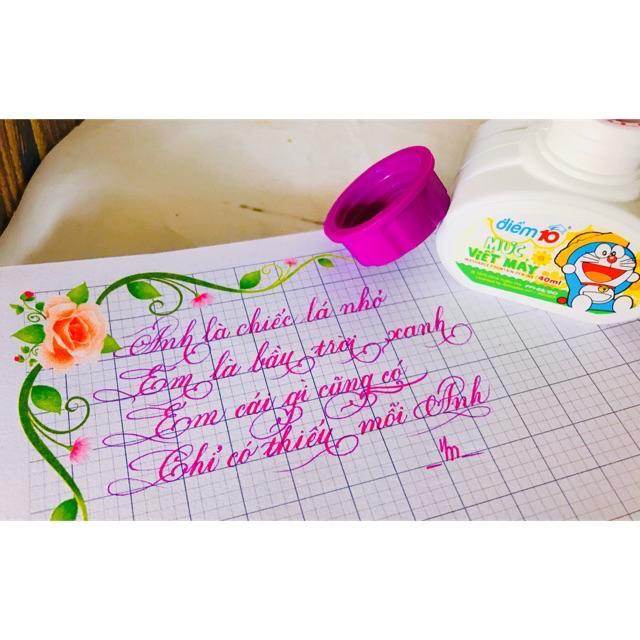 Anh là chiếc lá nhỏ
Em là bầu trời xanh
Em cái gì cũng có
Chỉ có thiếu mỗi Anh
điểm10
MỰC
VIẾT MÁY
WASHABLE FOUNTAIN PEN INK 40ml